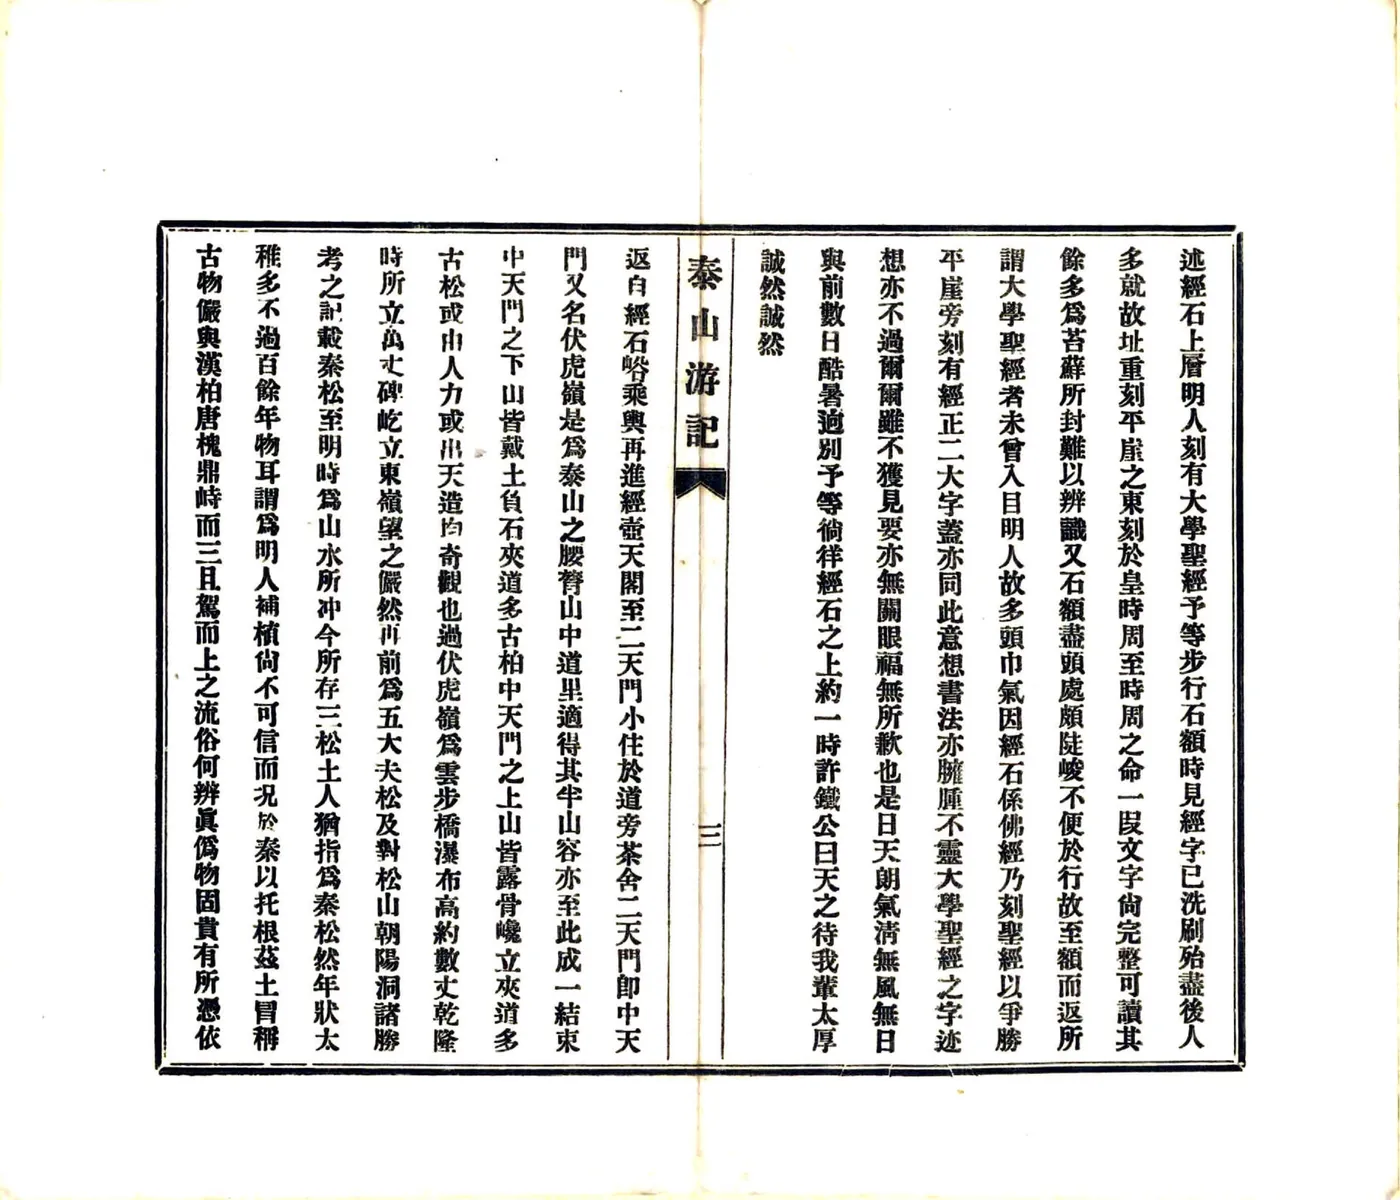 述經石上層明人刻有大學聖經予等步行石額時見經字已洗刷殆盡後人
多就故址重刻平崖之東刻於皇時周至時周之命一段文字尙完整可讀其
餘多爲苔蘚所封難以辨識又石額盡頭處頗陡峻不便於行故至額而返所
謂大學聖經者未曾入目明人故多頭巾氣因經石係佛經乃刻聖經以爭勝
平崖旁刻有經正二大字蓋亦同此意想書法亦臃腫不靈大學聖經之字迹
想亦不過爾爾雖不獲見要亦無關眼福無所歉也是日天朗氣淸無風無日
與前數日酷暑逈別予等徜徉經石之上約一時許鐵公曰天之待我輩太厚
誠然誠然
泰山游記
三
返自經石峪乘興再進經壺天閣至二天門小住於道旁茶舍二天門卽中天
門又名伏虎嶺是爲泰山之腰膂山中道里適得其半山容亦至此成一結束
中天門之下山皆戴土負石夾道多古柏中天門之上山皆露骨巉立夾道多
古松或由人力或出天造均奇觀也過伏虎嶺爲雲步橋瀑布高約數丈乾隆
時所立萬丈碑屹立東嶺望之儼然再前爲五大夫松及對松山朝陽洞諸勝
考之記載秦松至明時爲山水所冲今所存三松土人猶指爲秦松然年狀太
稚多不過百餘年物耳謂爲明人補植尙不可信而况於秦以托根茲土冒稱
古物儼與漢柏唐槐鼎峙而三且駕而上之流俗何辨眞僞物固貴有所憑依